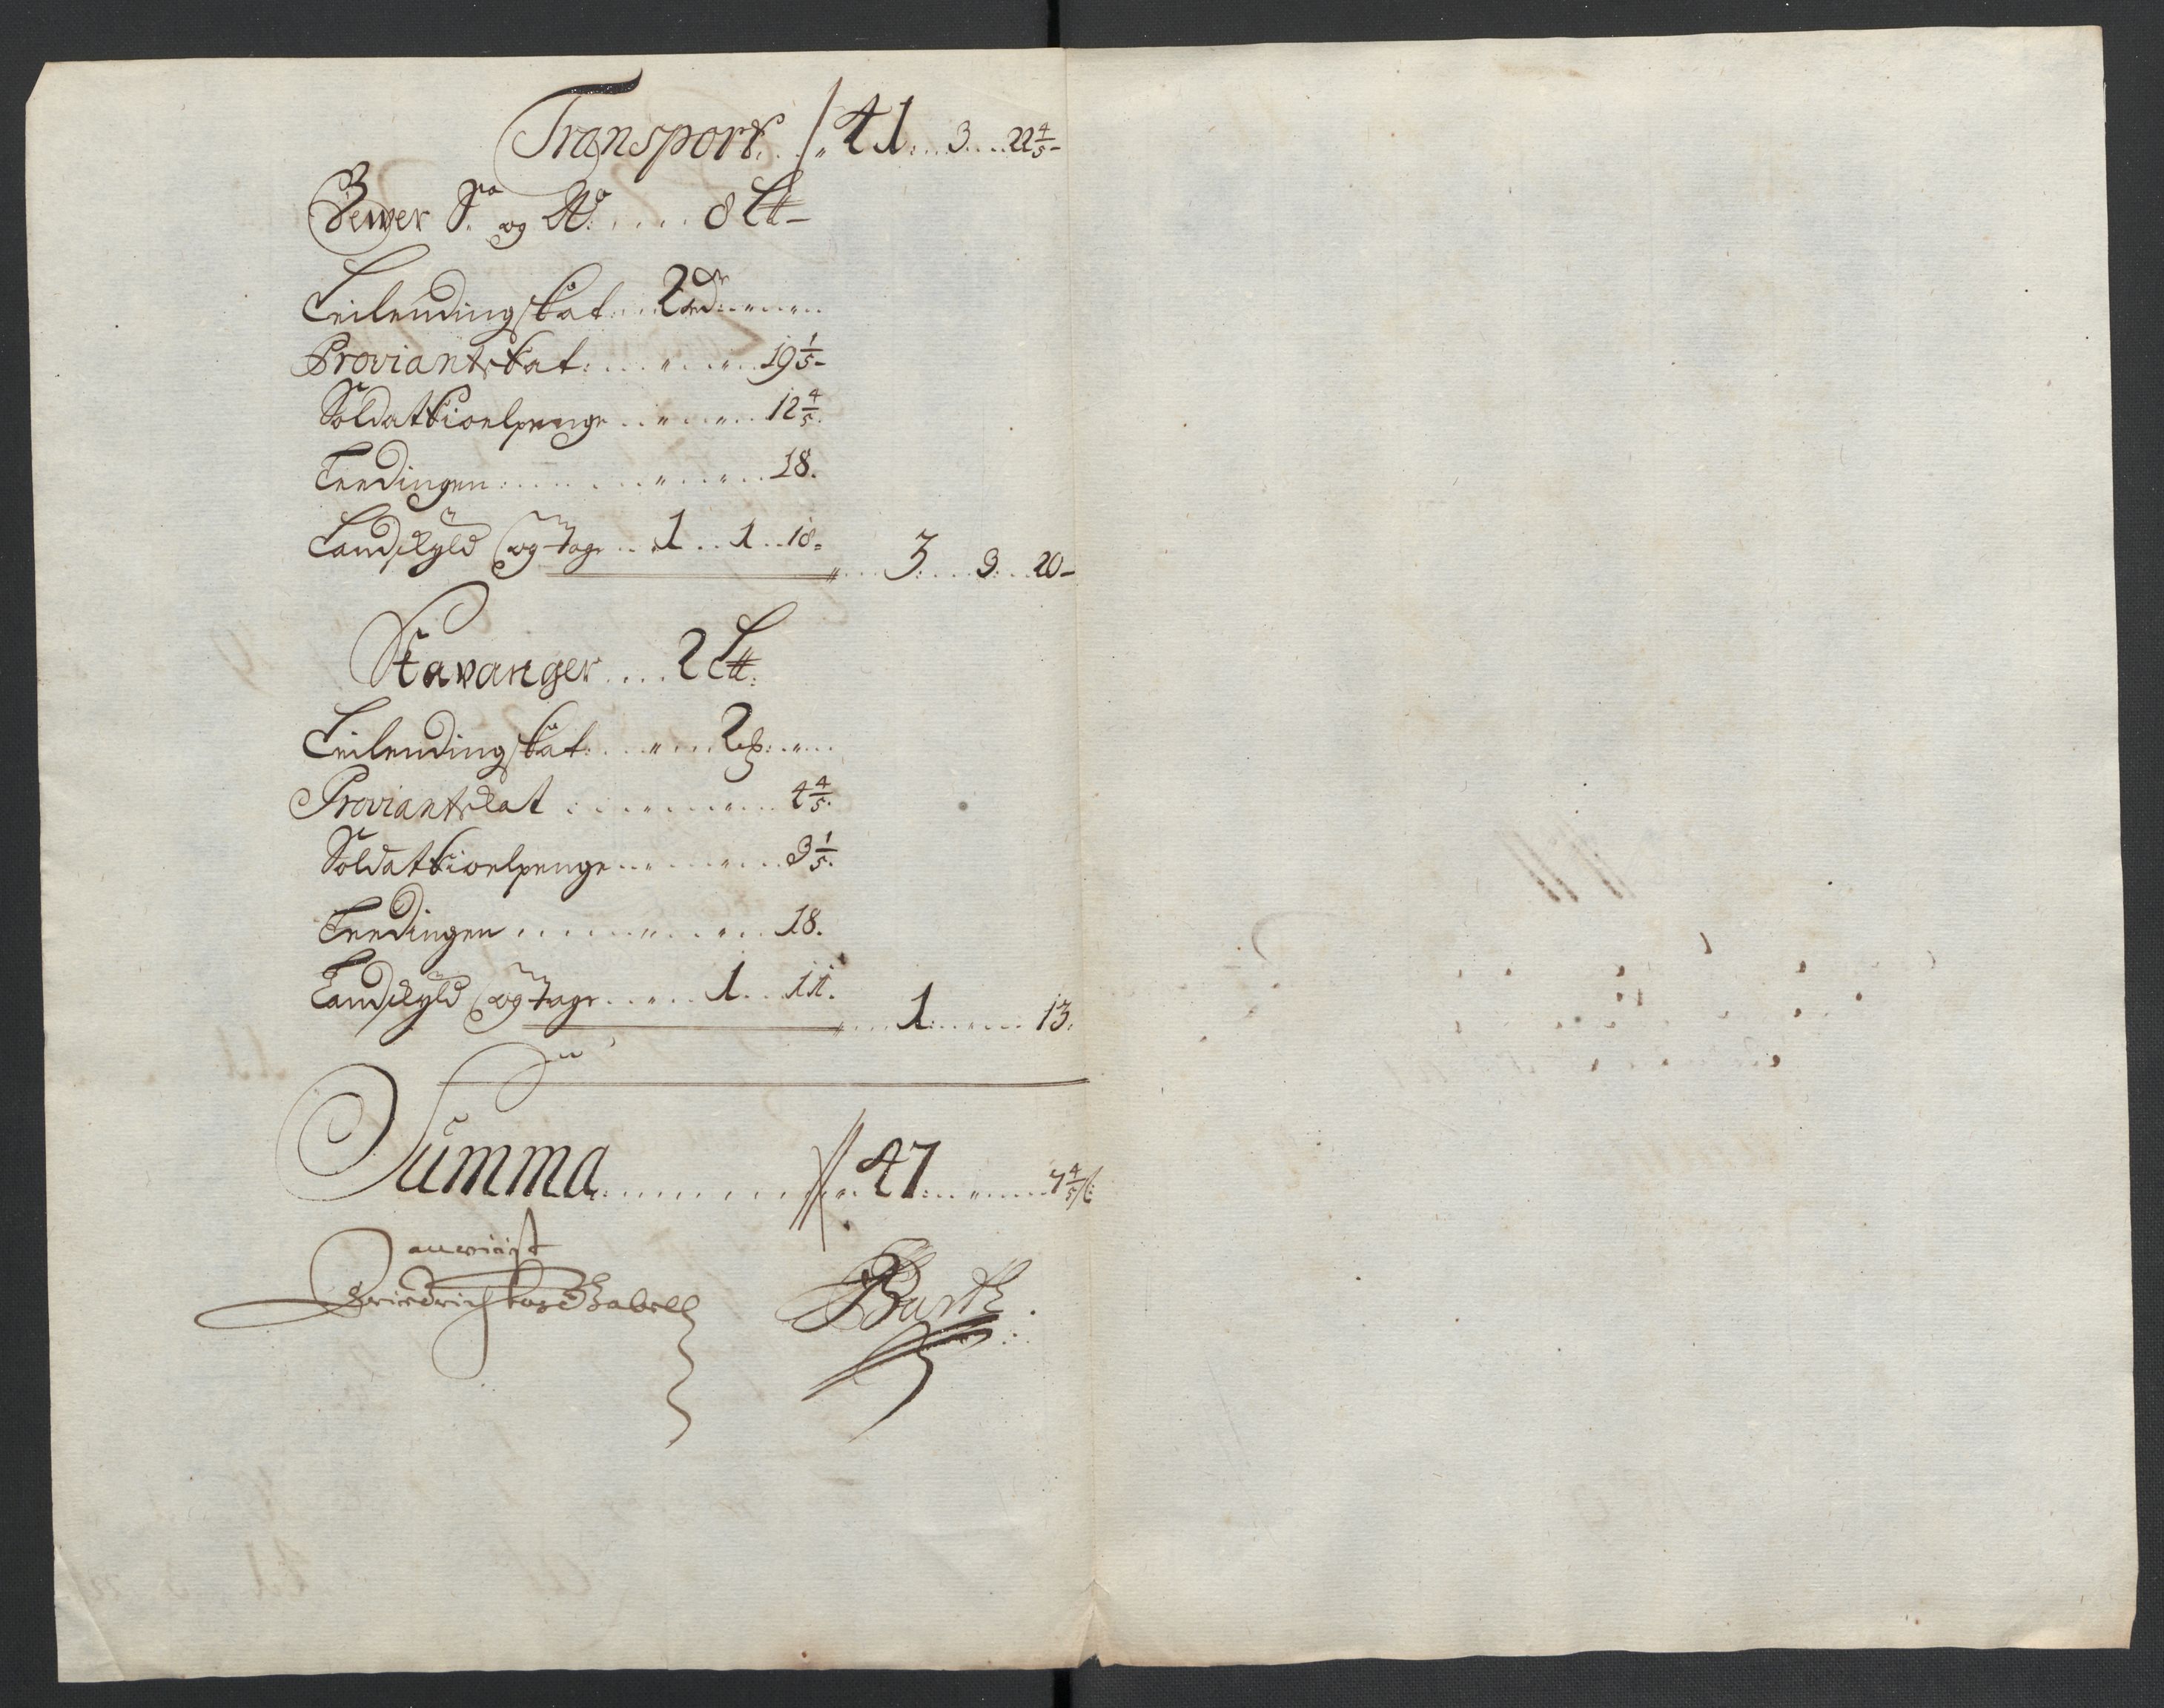 Transport 41 . 3 . 22 4/5
og 8 Lt
Leilendingskat 2
Proviantskat 19 1/5
Soldatskioelpenge 12 4/5
Tredingen 18
Landskyld og tage 1 . 1 . 18
3 . 3 . 20
Stavanger 2 Lt
Leilendingskat 2
Proviantskat 4 4/5
Soldatskioelpenge 3 1/5
Tredingen 18
Landskyld og tage 1 . 11
1 . 13
Summa 47 . 7 4/5
Friedrich